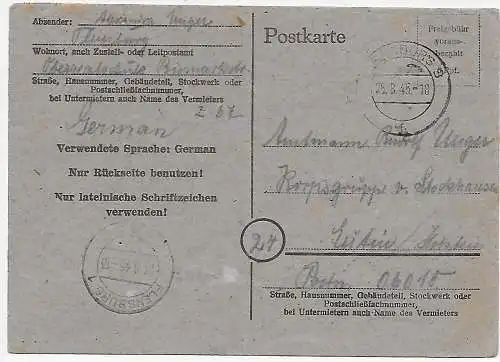 Absender: Alexandra Unger
Flensburg
Wohnort, auch Zustell- oder Leitpostamt
Oberrealschule Bismarckstr.
Straße, Hausnummer, Gebäudeteil, Stockwerk oder
Postschließfachnummer,
bei Untermietern auch Name des Vermieters
Z 67
German
Verwendete Sprache: German
Nur Rückseite benutzen!
Nur lateinische Schriftzeichen
verwenden!
FLENSBURG
Postkarte
25.8.45.-18
Freigebühr
voraus-
bezahlt
Rpf.
Amtmann Rudolf Unger
Korpsgruppe v. Stockhausen
24
Eutin/Holstein
06015
Straße, Hausnummer, Gebäudeteil, Stockwerk oder
Postschließfachnummer,
bei Untermietern auch Name des Vermieters